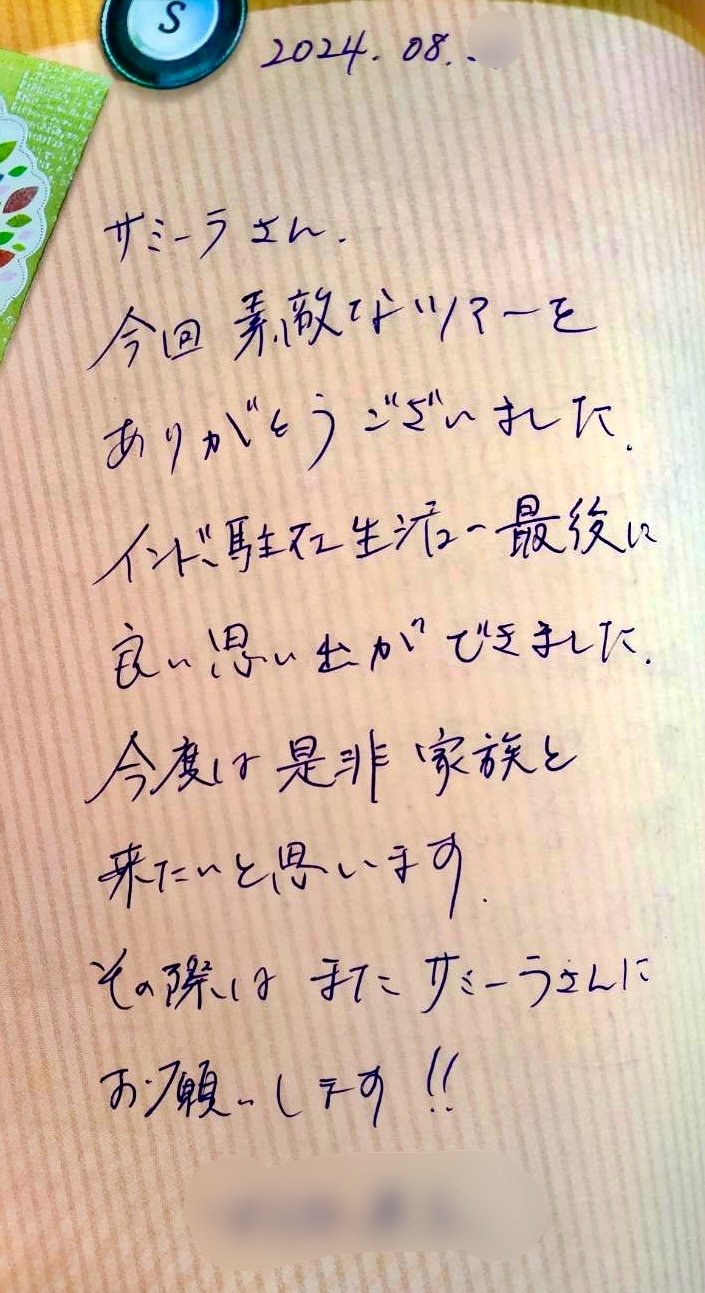 S
2024.08.
サミーラさん.
今回 素敵なツアーを
ありがとうございました.
インド駐在生活の最後に
良い思い出ができました.
今度は是非 家族と
来たいと思います.
その際は またサミーラさんに
お願いします!!